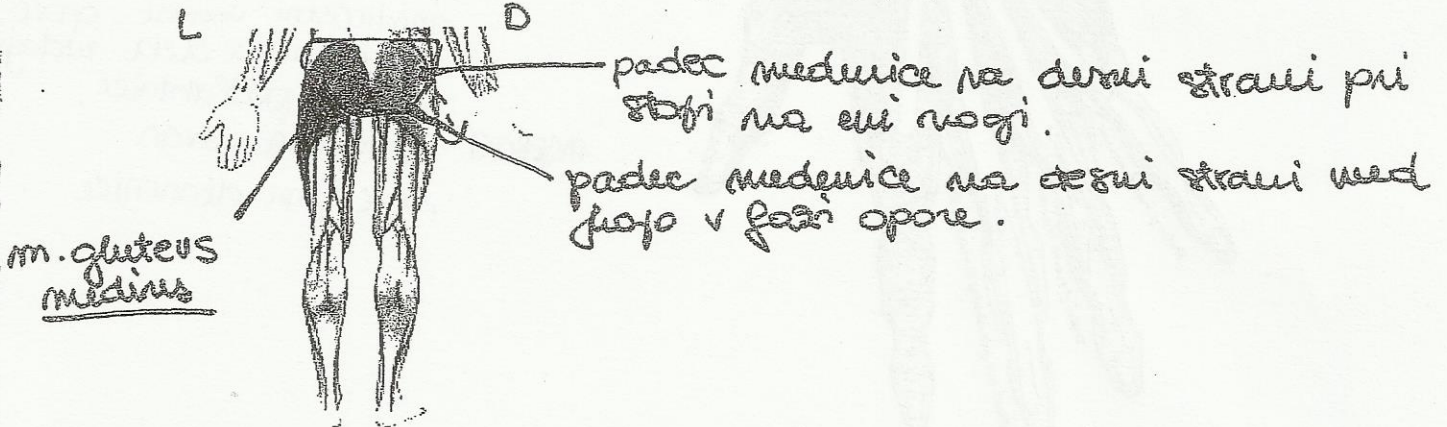 L
D
padec medenice na desni strani pri
stoji na eni nogi.
padec medenice na desni strani med
hojo v fazi opore.
m. gluteus
medius